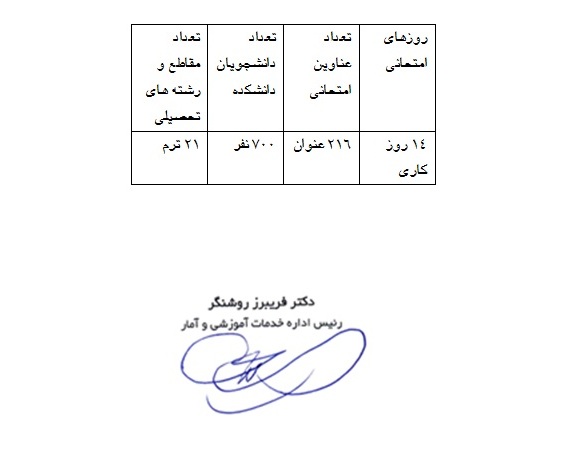 روزهای
امتحانی
تعداد
عناوین
امتحانی
تعداد
دانشجویان
دانشکده
تعداد
مقاطع و
رشته های
تحصیلی
١٤ روز
کاری
٢١٦ عنوان
٧٠٠ نفر
٢١ ترم
دکتر فریبرز روشنگر
رئیس اداره خدمات آموزشی و آمار